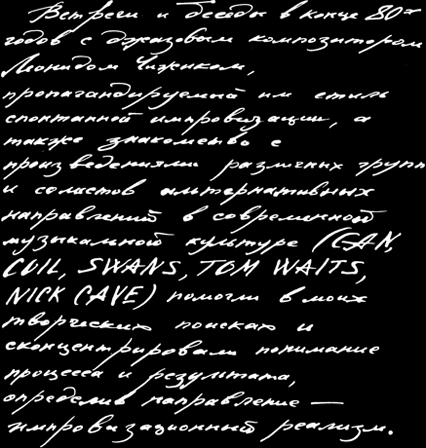 Встречи и беседы в конце 80-х
годов с джазовым композитором
Леонидом Чижиком,
пропагандируемый им стиль
спонтанной импровизации, а
также знакомство с
произведениями различных групп
и солистов альтернативных
направлений в современной
музыкальной культуре (CAN,
COIL, SWANS, TOM WAITS,
NICK CAVE) помогли в моих
творческих поисках и
сконцентрировали понимание
процесса и результата,
определив направление —
импровизационный реализм.